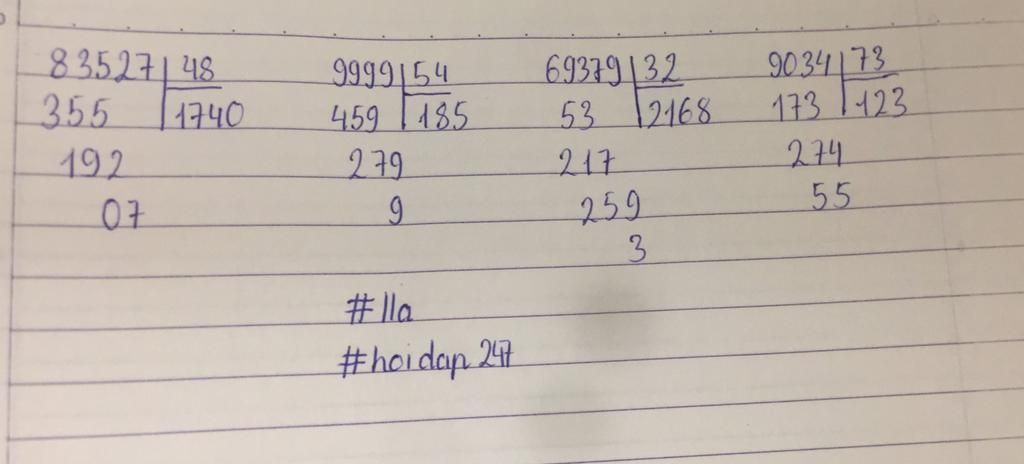 83527 48 9999 54 69379 32 9034 73
355 1740 459 185 53 2168 173 123
192 279 217 274
07 9 259 55
3
#lla
#hoidap247